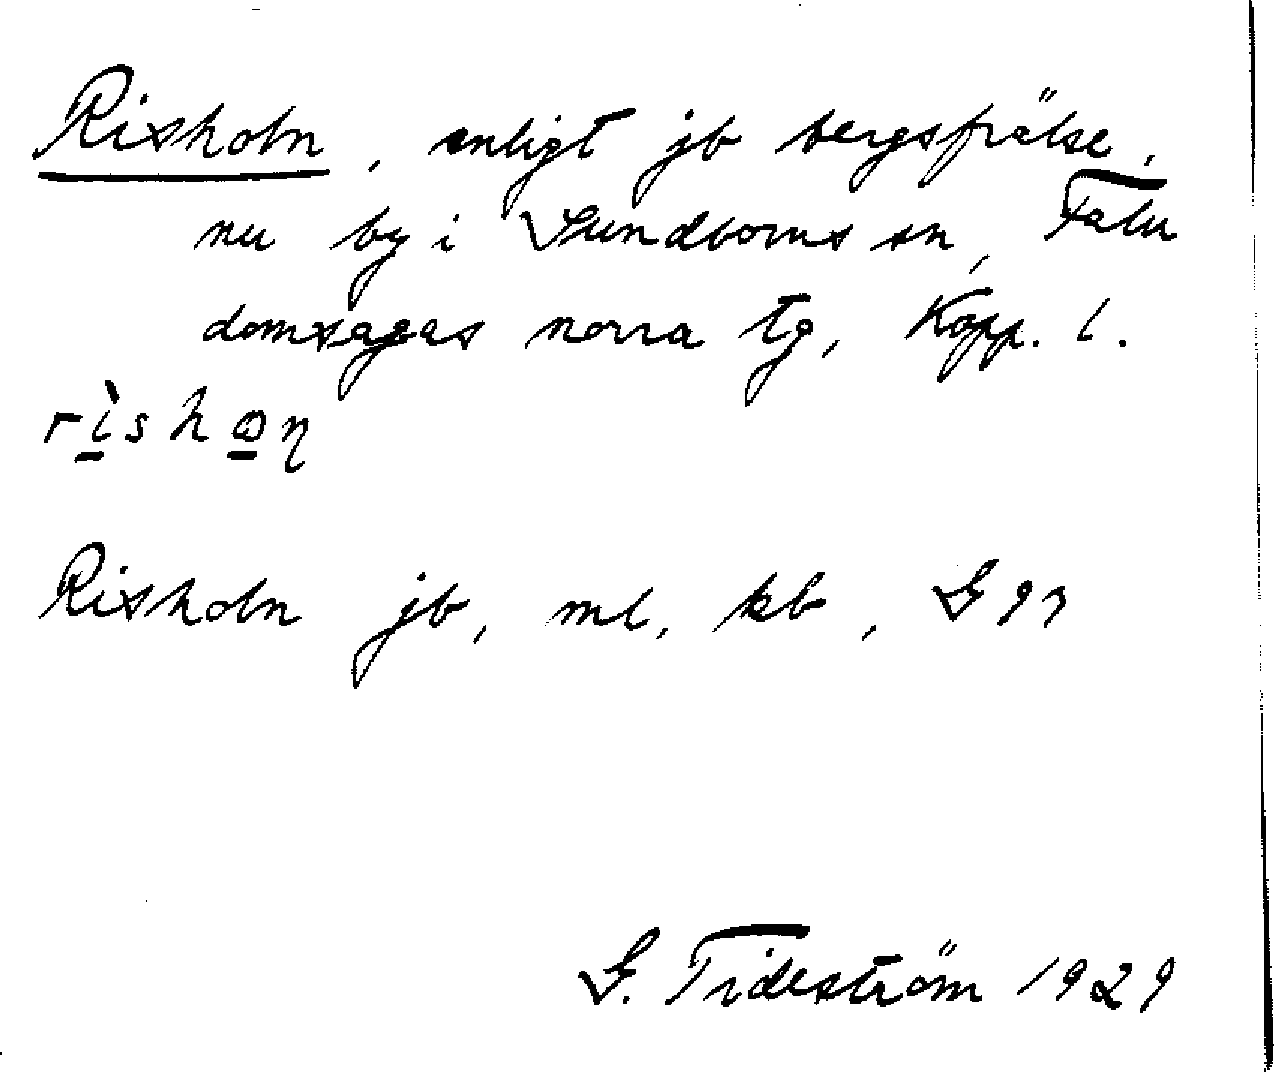 Risholn, enligt jb bergsfrälse,
nu by i Sundborns sn, Falu
domsagas norra tg, Kopp. l.
rìshon
Risholn jb, ml, kb, G 97
G. Tideström 1929